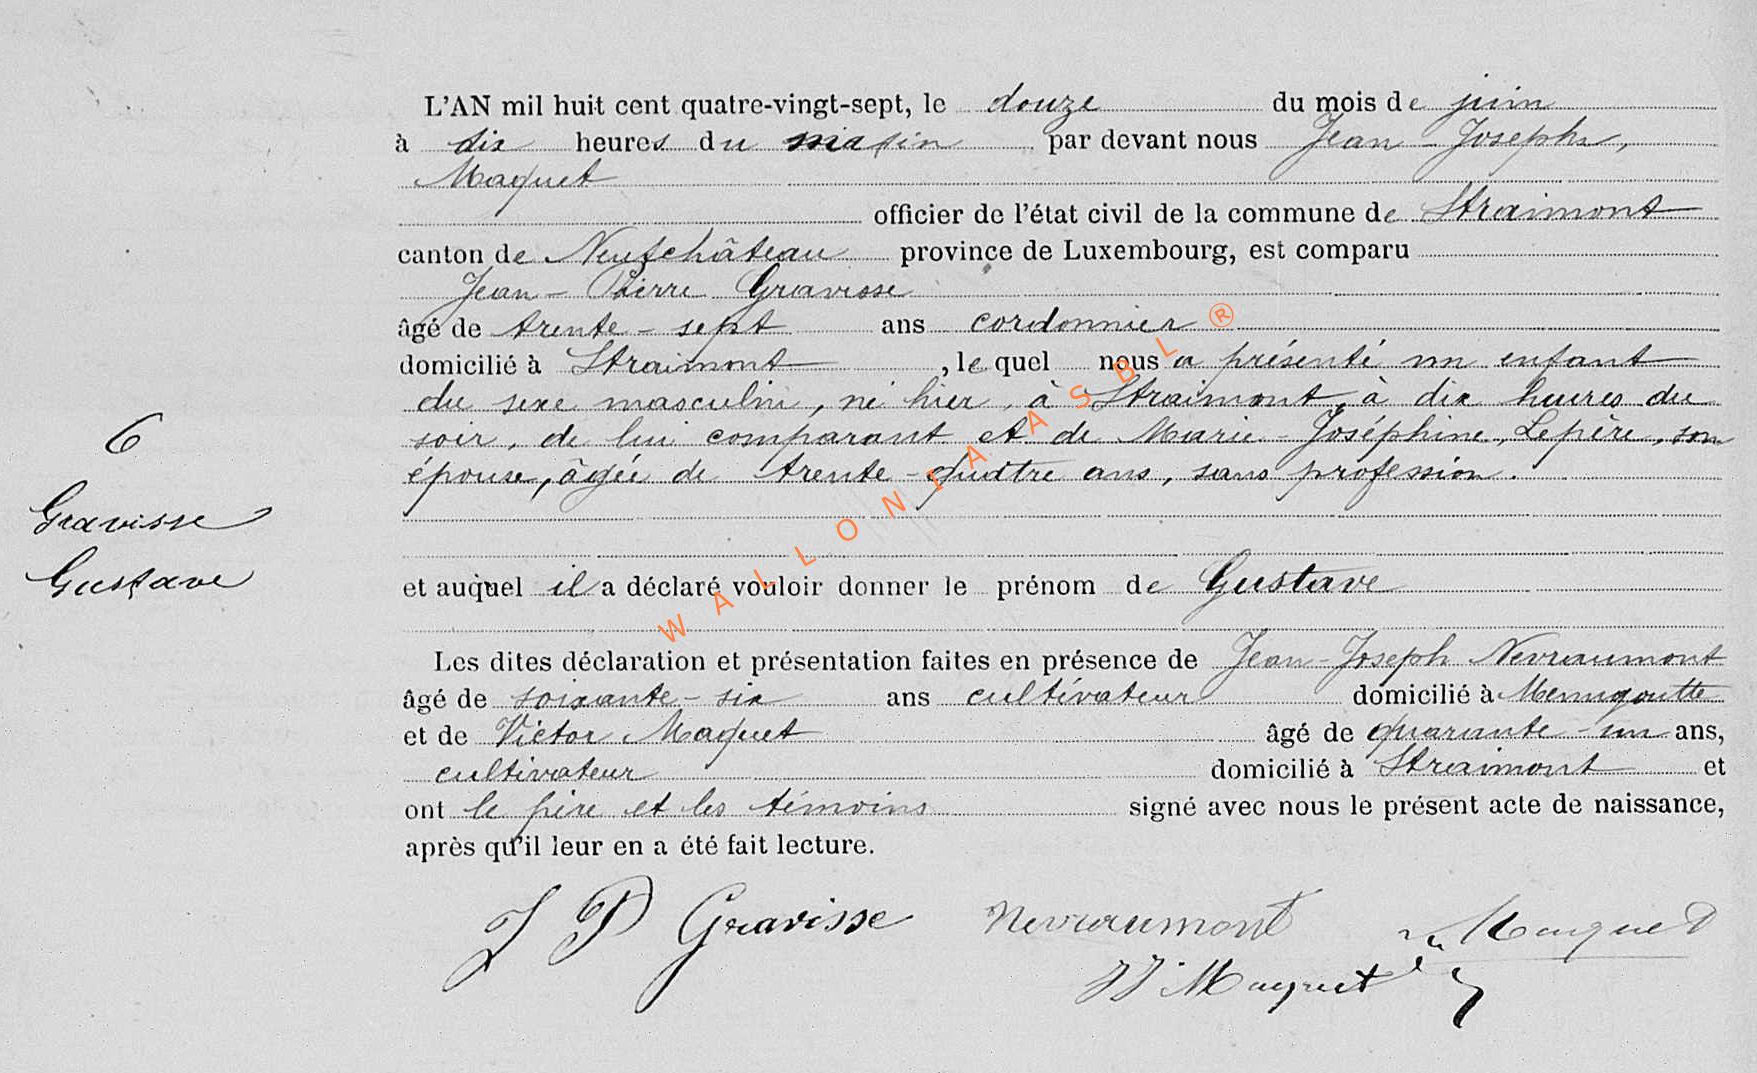 L'AN mil huit cent quatre-vingt-sept, le douze du mois de juin
à dix heures du matin par devant nous Jean-Joseph,
Maquet
officier de l'état civil de la commune de Straimont
canton de Neufchâteau province de Luxembourg, est comparu
Jean-Pierre Gravisse
âgé de trente-sept ans cordonnier
domicilié à Straimont, le quel nous a présenté un enfant
du sexe masculin, né hier, à Straimont, à dix heures du
soir, de lui comparant et de Marie-Joséphine, Lepère, son
épouse, âgée de trente-quatre ans, sans profession.
6
Gravisse
Gustave
et auquel il a déclaré vouloir donner le prénom de Gustave
Les dites déclaration et présentation faites en présence de Jean-Joseph Nevraumont
âgé de soixante-six ans cultivateur domicilié à Menugoutte
et de Victor Maquet âgé de quarante-un ans,
cultivateur domicilié à Straimont et
ont le père et les témoins signé avec nous le présent acte de naissance,
après qu'il leur en a été fait lecture.
J P Gravisse Nevraumont Maquet
JJ Maquet
WALLONIA ASBL ®